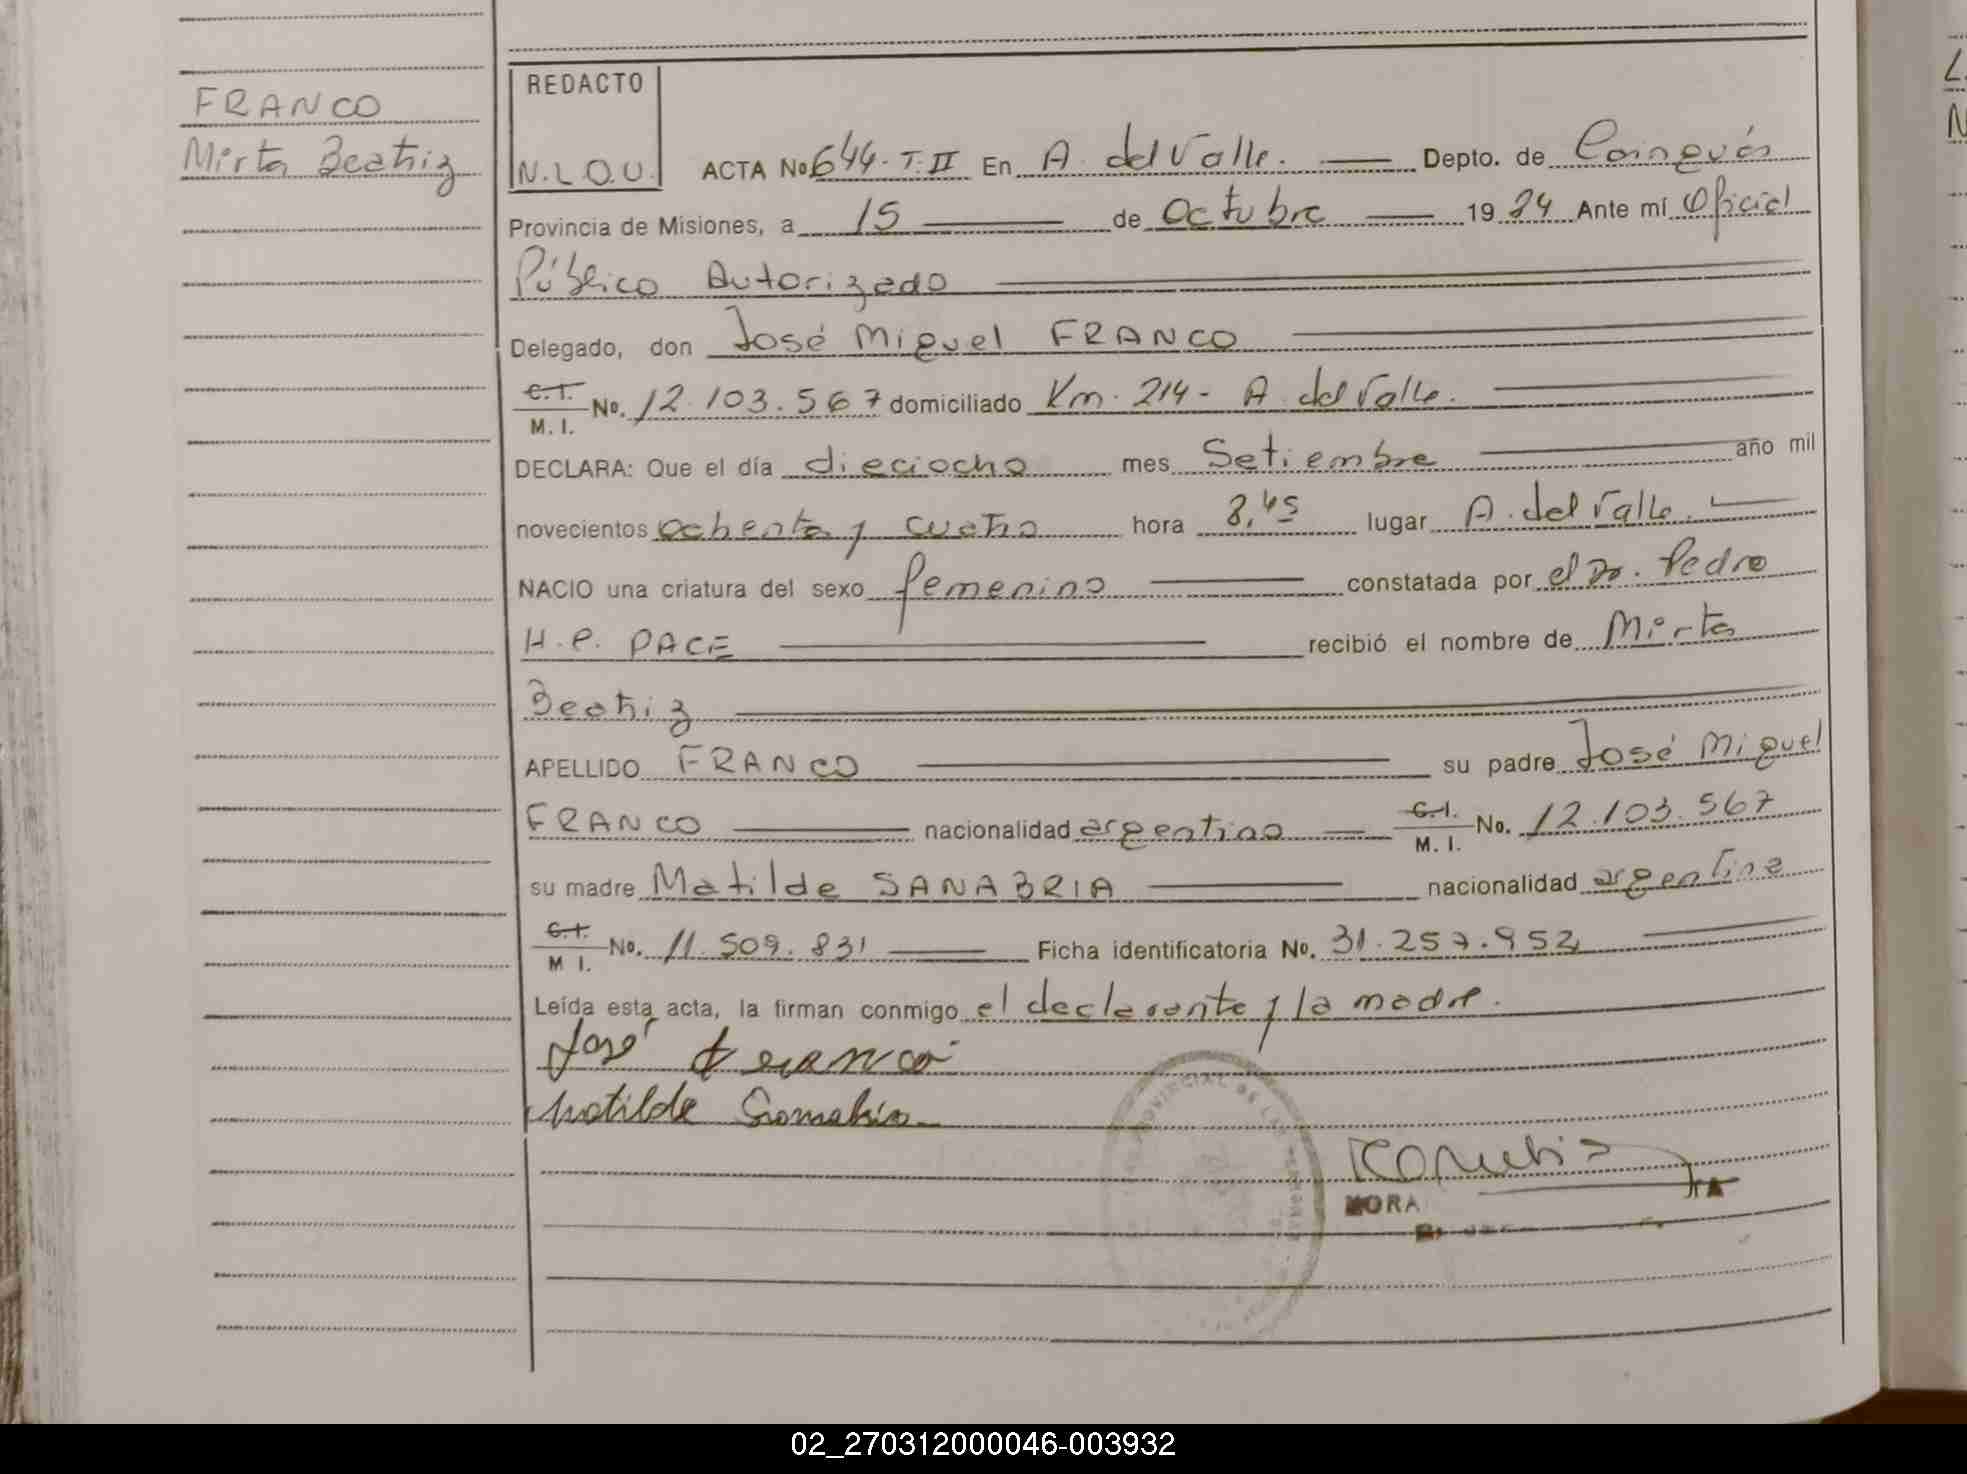 FRANCO
Mirta Beatriz
REDACTO
N.L.O.U.
ACTA No 644. T. II En A. del Valle. Depto. de Cainguás
Provincia de Misiones, a 15 de Octubre 19 84 Ante mí Oficial
Público Autorizado
Delegado, don José Miguel FRANCO
C.I. M. I. No. 12.103.567 domiciliado Km. 214 - A. del Valle.
DECLARA: Que el día dieciocho mes Setiembre año mil
novecientos ochenta y cuatro hora 8,45 lugar A. del Valle.
NACIO una criatura del sexo femenino constatada por el Dr. Pedro
H. P. PACE recibió el nombre de Mirta
Beatriz
APELLIDO FRANCO su padre José Miguel
FRANCO nacionalidad argentino C.I. M. I. No. 12.103.567
su madre Matilde SANABRIA nacionalidad argentina
C.I. M I. No. 11.509.831 Ficha identificatoria No. 31.257.952
Leída esta acta, la firman conmigo el declarante y la madre.
José Franco
Matilde Sanabria
PROVINCIAL DE LAS PERSONAS
MORA
02_270312000046-003932